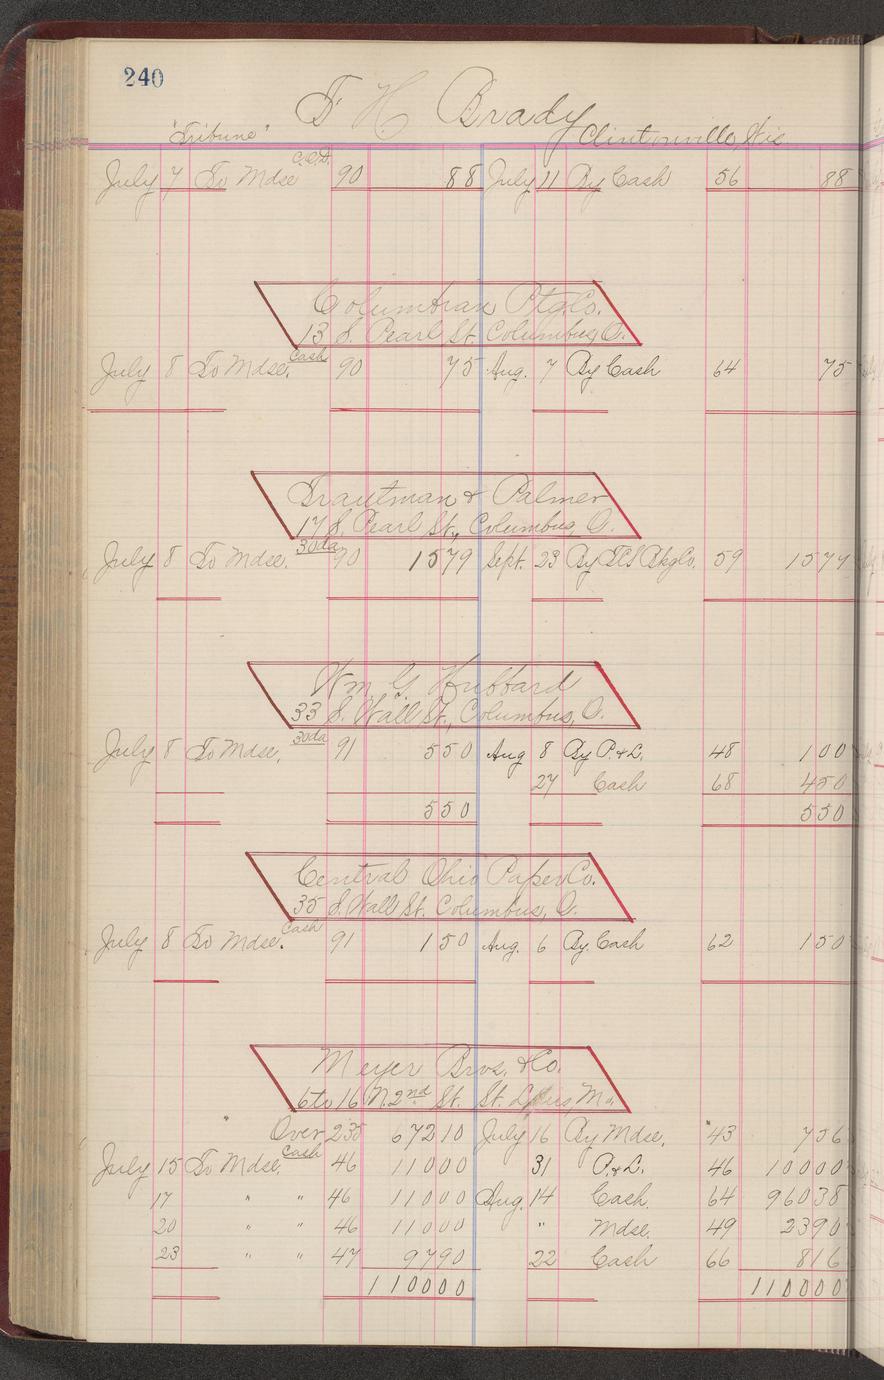 240
F H Brady
"Tribune" Clintonville, Wis.
July 7 To Mdse C.O.D. 90 88 July 11 By Cash 56 88
Columbian Ptg. Co.
13 S. Pearl St. Columbus, O.
July 8 To Mdse. Cash 90 75 Aug. 7 By Cash 64 75
Trautman & Palmer
17 S. Pearl St., Columbus, O.
July 8 To Mdse. 30da 90 1579 Sept. 23 By 59 1579
Wm G. Hubbard
33 S. Wall St., Columbus, O.
July 8 To Mdse. 30da 91 550 Aug 8 By P.&L. 48 100
27 Cash 68 450
550 550
Central Ohio Paper Co.
35 S. Wall St. Columbus, O.
July 8 To Mdse. Cash 91 150 Aug. 6 By Cash 62 150
Meyer Bros. & Co.
6 to 16 N. 2nd St. St. Louis, Mo.
" Over 235 67210 July 16 By Mdse. "43 756
July 15 To Mdse. Cash 46 11000 31 P.&L. 46 10000
17 " " 46 11000 Aug. 14 Cash. 64 96038
20 " " 46 11000 " Mdse. 49 2390
23 " " 47 9790 22 Cash 66 816
110000 110000